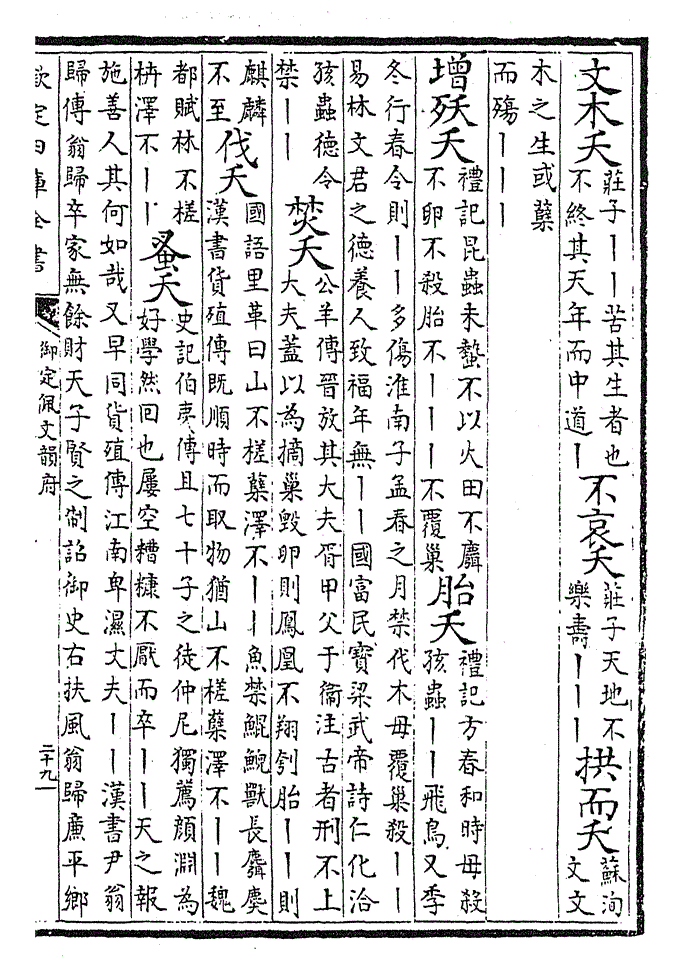 文木夭 莊子丨丨苦其生者也
不終其天年而中道丨 不哀夭 莊子天地不
樂壽丨丨丨 拱而夭 蘇洵
文文
木之生或蘖
而殤丨丨丨
增殀夭 禮記昆蟲未蟄不以火田不麛
不卵不殺胎不丨丨丨不覆巢 胎夭 禮記方春和時毋殺
孩蟲丨丨飛鳥又季
冬行春令則丨丨多傷淮南子孟春之月禁伐木毋覆巢殺丨丨
易林文君之德養人致福年無丨丨國富民寶梁武帝詩仁化洽
孩蟲德令
禁丨丨 焚夭 公羊傳晉放其大夫胥甲父于衞注古者刑不上
大夫蓋以為摘巢毀卵則鳳凰不翔刳胎丨丨則
麒麟
不至 伐夭 國語里革曰山不槎蘖澤不丨丨魚禁鯤鮸獸長麛麌
漢書貨殖傳既順時而取物猶山不槎蘖澤不丨丨魏
都賦林不槎
枿澤不丨丨 蚤夭 史記伯夷傳且七十子之徒仲尼獨薦顏淵為
好學然回也屢空糟糠不厭而卒丨丨天之報
施善人其何如哉又早同貨殖傳江南卑濕丈夫丨丨漢書尹翁
歸傳翁歸卒家無餘財天子賢之制詔御史右扶風翁歸廉平鄉
欽定四庫全書
御定佩文韻府
二十九